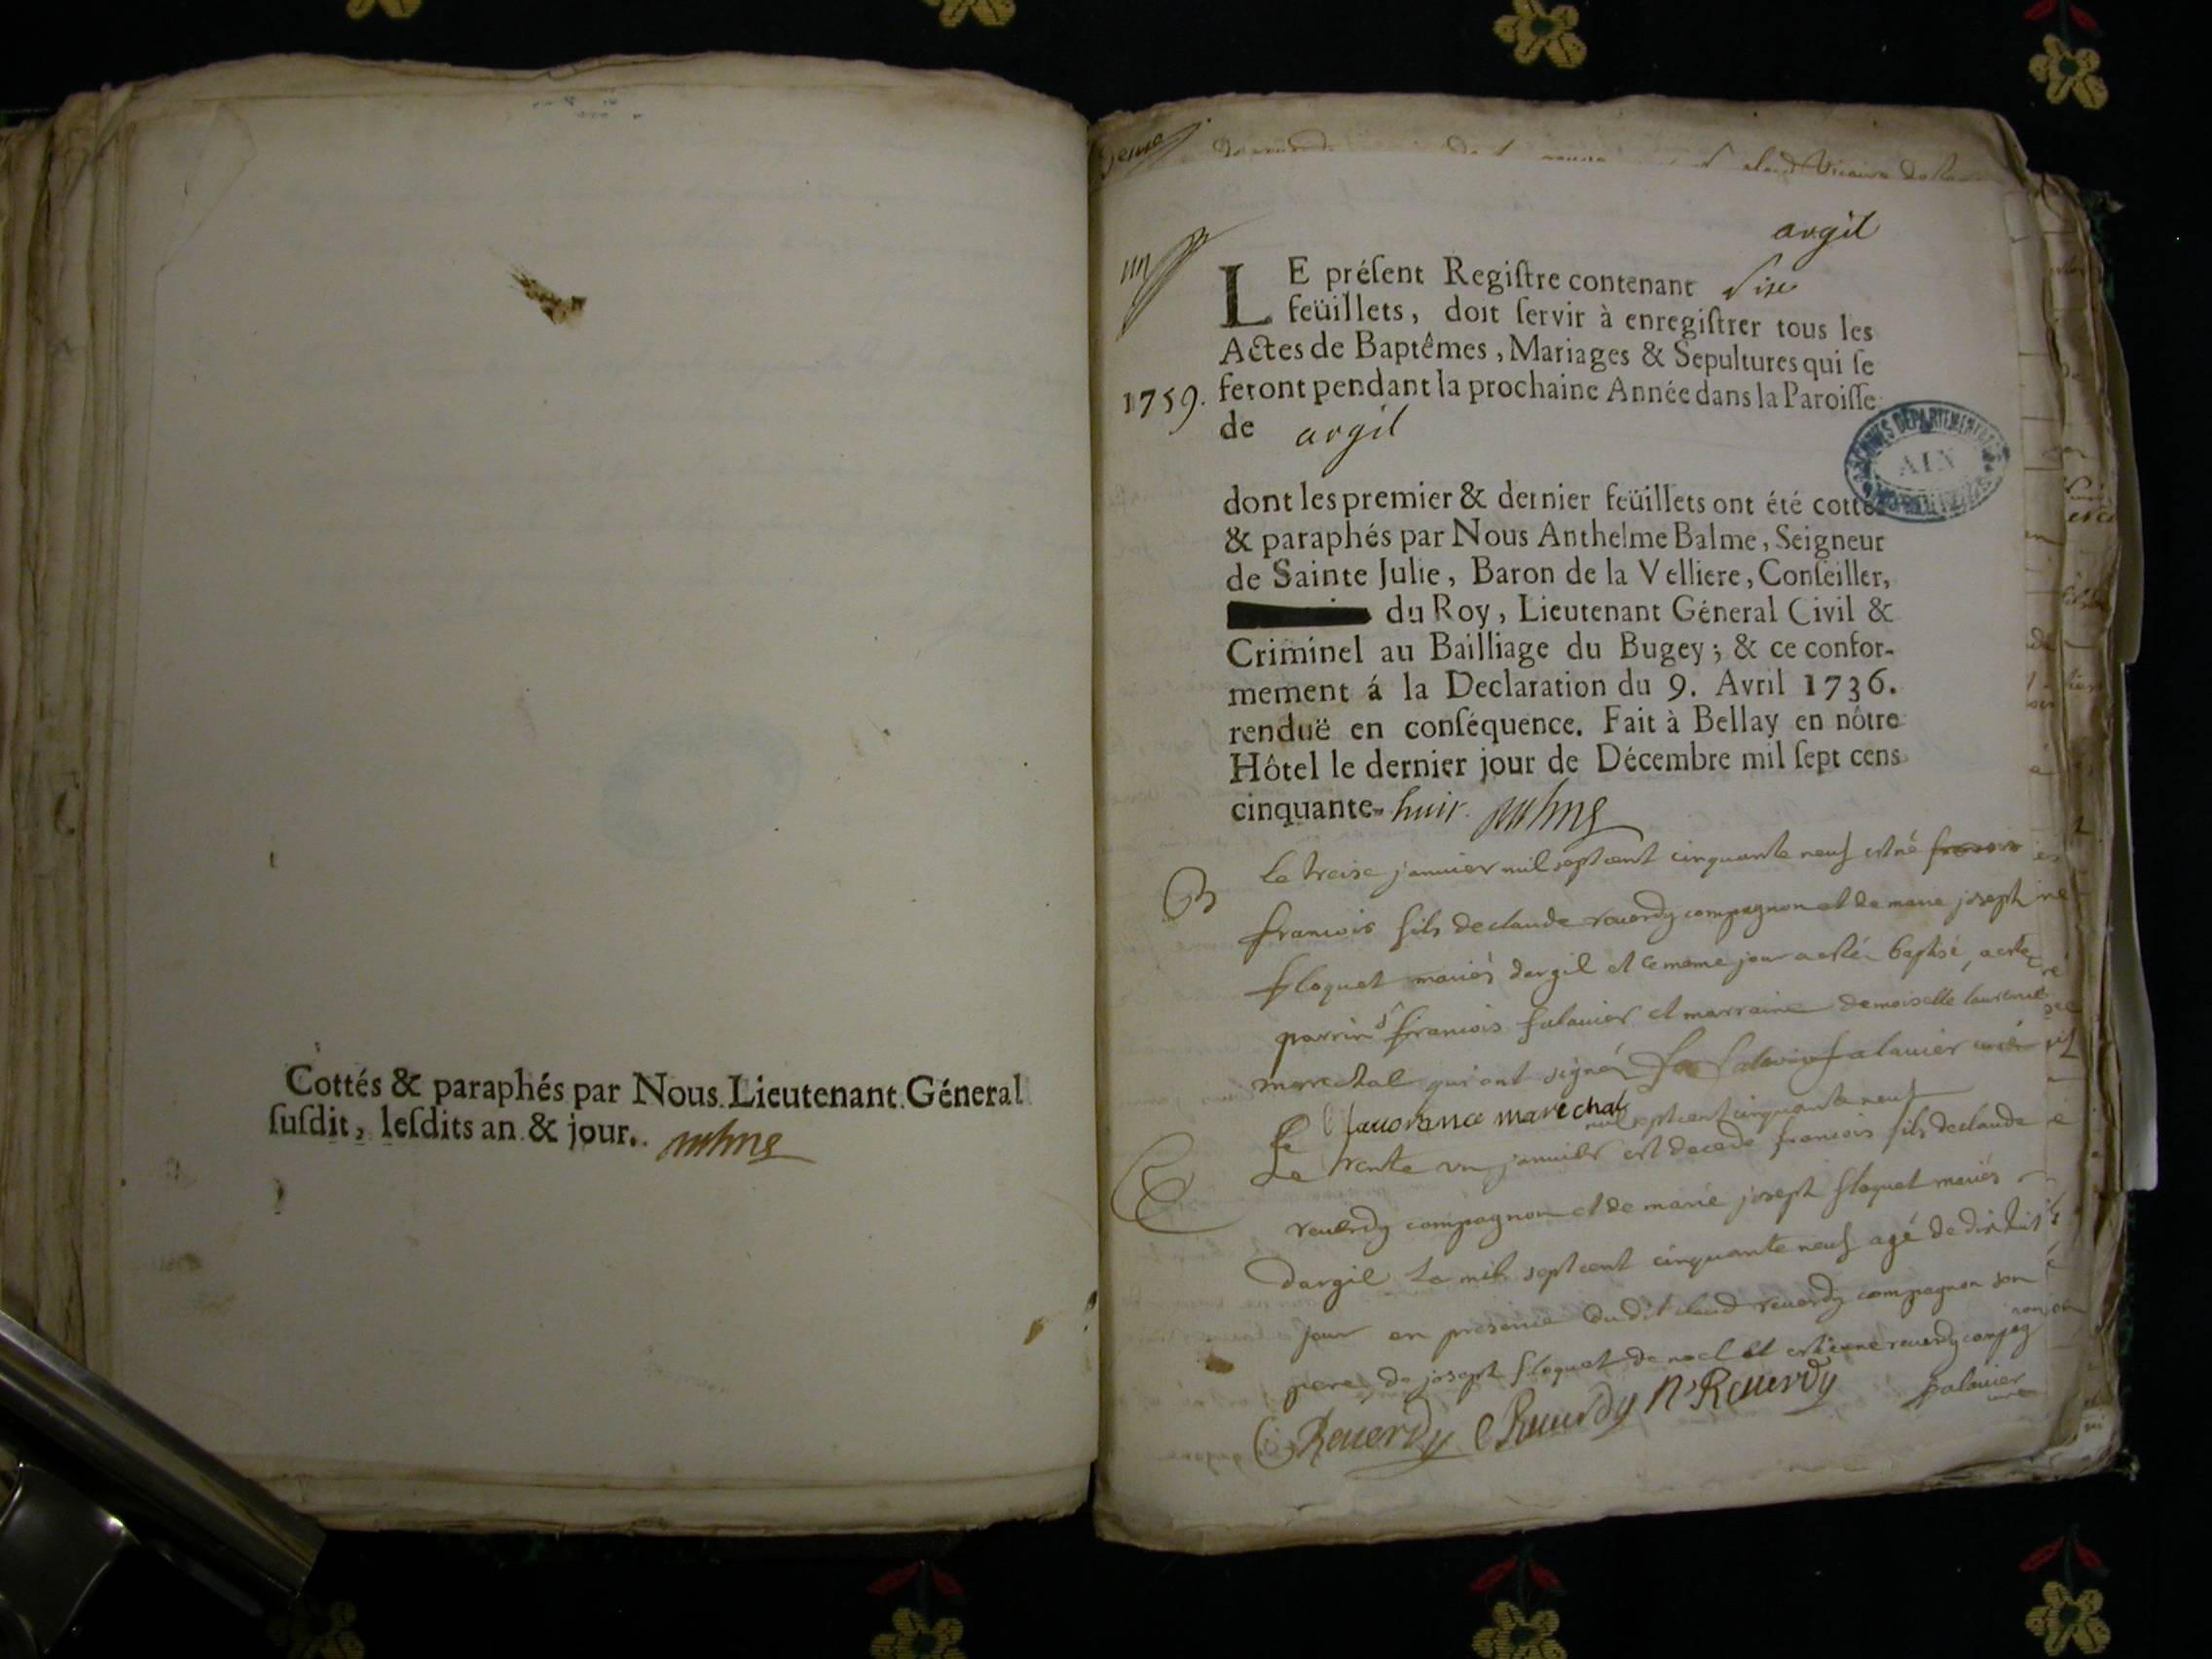 Cottés & paraphés par Nous Lieutenant Géneral
ſuſdit, leſdits an & jour.
argil
LE préſent Regiſtre contenant Six
feüillets, doit ſervir à enregiſtrer tous les
Actes de Baptêmes, Mariages & Sepultures qui ſe
1759. feront pendant la prochaine Année dans la Paroiſſe
de argil
ARCHIVES DEPARTEMENTALES
AIN
dont les premier & dernier feüillets ont été cottés
& paraphés par Nous Anthelme Balme, Seigneur
de Sainte Julie, Baron de la Velliere, Conſeiller,
du Roy, Lieutenant Géneral Civil &
Criminel au Bailliage du Bugey; & ce confor-
mement á la Declaration du 9. Avril 1736.
renduë en conſéquence. Fait à Bellay en nôtre
Hôtel le dernier jour de Décembre mil ſept cens
cinquante-huit.
B Le treise janvier mil sept cent cinquante neuf est né
francois fils de claude reverdy compagnon et de marie joseph
floquet mariés dargil et le meme jour a esté baptisé, a esté
parrin sr francois falavier et marraine demoiselle laurence
marechal qui ont signé falavier
laurance marechal
mil sept cent cinquante neuf
Le trente un janvier est decede francois fils de claude
reverdy compagnon et de marie joseph floquet mariés
dargil Le mil sept cent cinquante neuf agé de dix huit
jour en presence dudit claud reverdy compagnon son
pere, de joseph floquet de noel et estienne reverdy compag
non
C Reverdy E Reverdy N Reverdy falavier